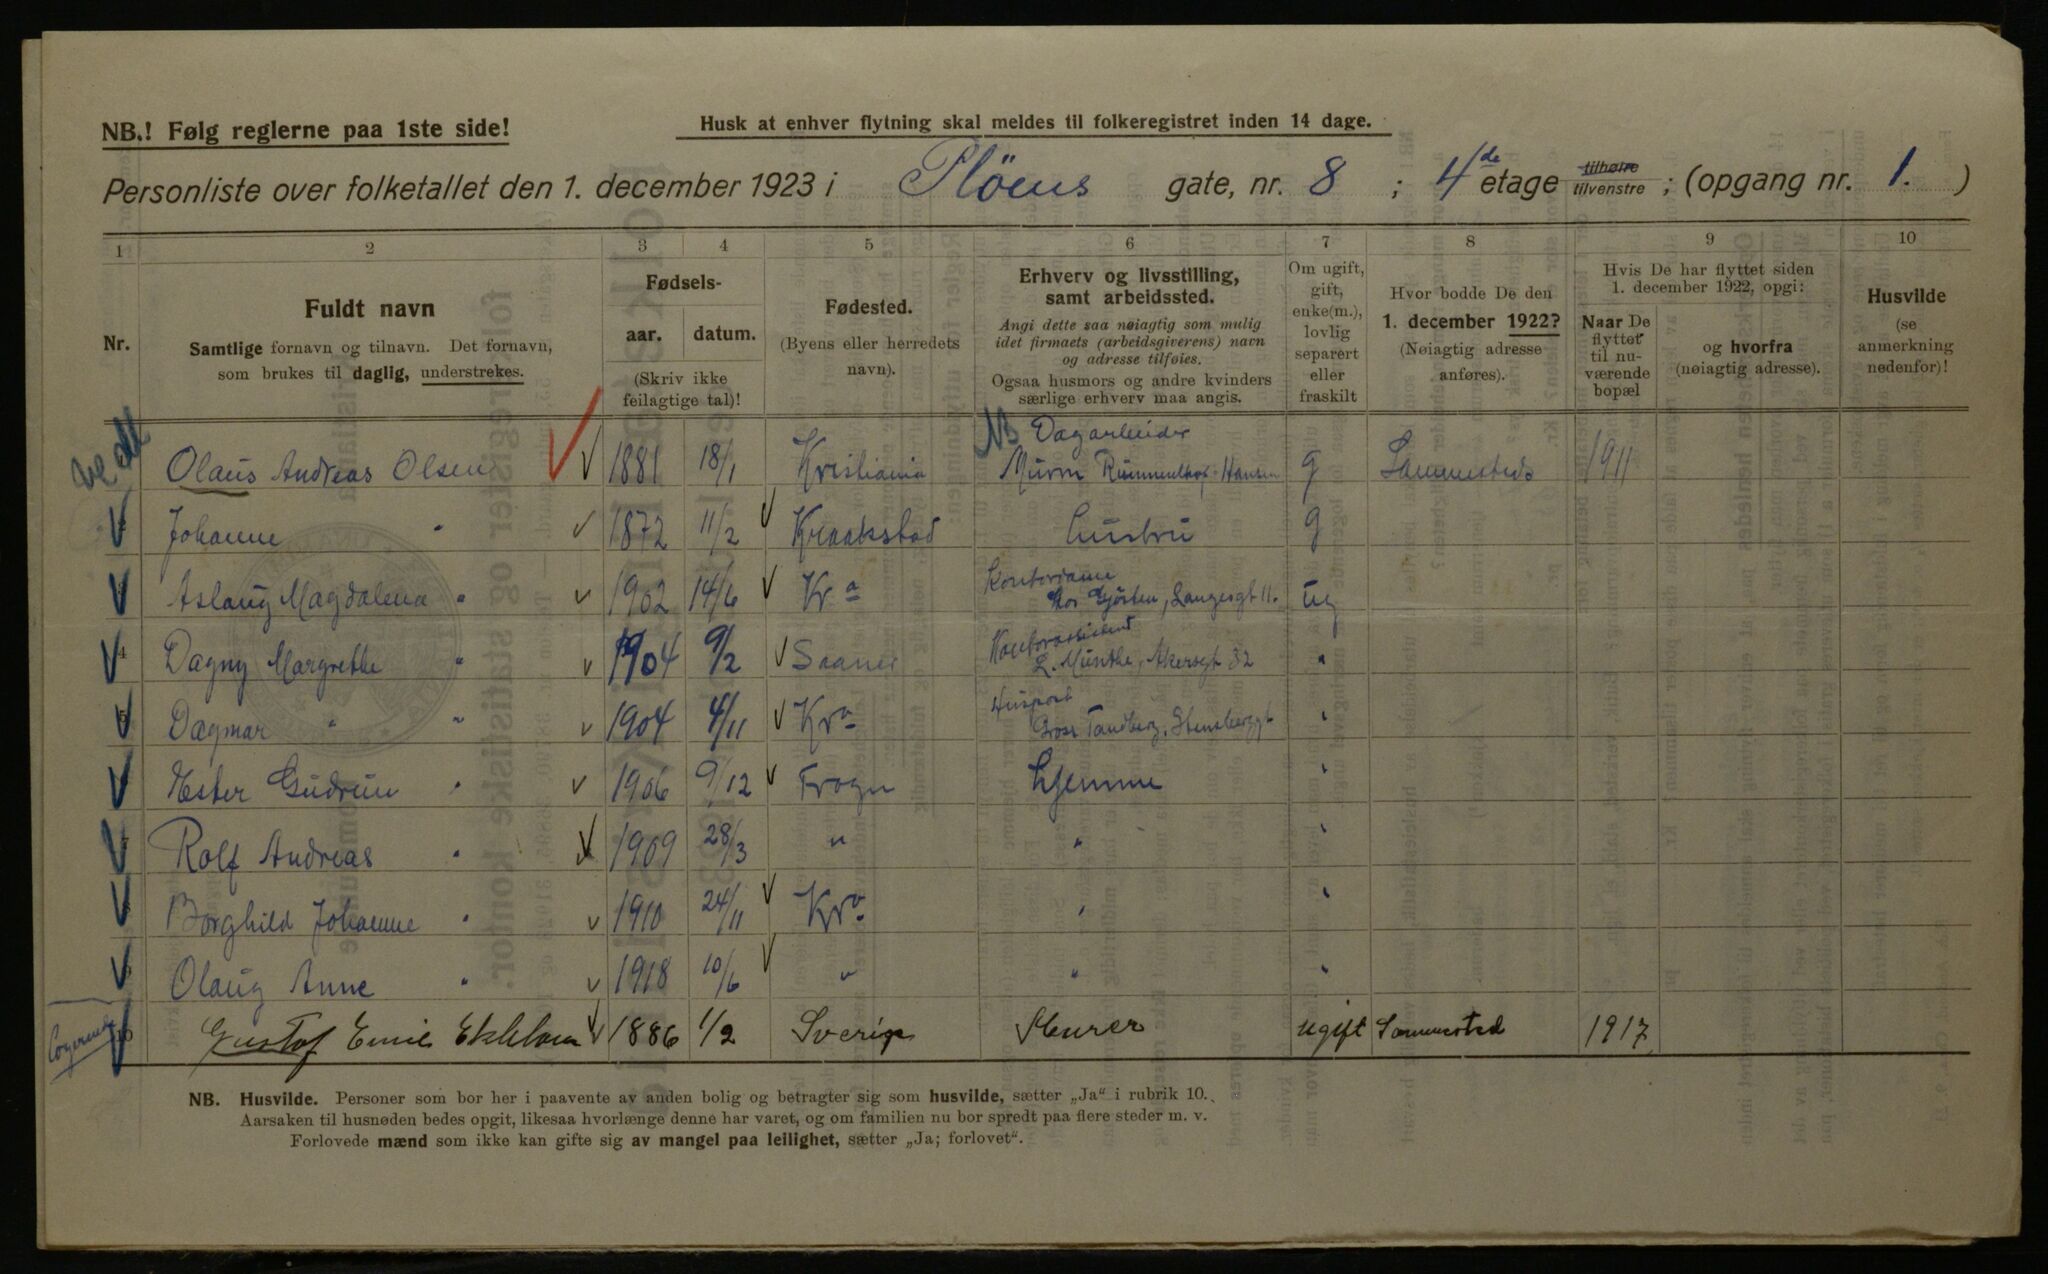 NB.! Følg reglerne paa 1ste side!
Husk at enhver flytning skal meldes til folkeregistret inden 14 dage.
Personliste over folketallet den 1. december 1923 i Plöens gate, nr. 8 ; 4de etage tilhøire tilvenstre ; (opgang nr. 1. )
1 2 3 4 5 6 7 8 9 10
Nr.
Fuldt navn
Samtlige fornavn og tilnavn. Det fornavn,
som brukes til daglig, understrekes.
Fødsels-
aar. datum.
(Skriv ikke
feilagtige tal)!
Fødested.
(Byens eller herredets
navn).
Erhverv og livsstilling,
samt arbeidssted.
Angi dette saa nøiagtig som mulig
idet firmaets (arbeidsgiverens) navn
og adresse tilføies.
Ogsaa husmors og andre kvinders
særlige erhverv maa angis.
Om ugift,
gift,
enke(m.),
lovlig
separert
eller
fraskilt
Hvor bodde De den
1. december 1922?
(Nøiagtig adresse
anføres).
Hvis De har flyttet siden
1. december 1922, opgi:
Naar De
flyttet
til nu-
værende
bopæl
og hvorfra
(nøiagtig adresse).
Husvilde
(se
anmerkning
nedenfor)!
NB Dagarbeider
Olaus Andreas Olsen 1881 18/1 Kristiania Murm Hansen g Sammesteds 1911
Johanne " 1872 11/2 Kraakstad Hustru g
Aslaug Magdalena " 1902 14/6 Kra Kontordame
Langesgt 11. ug
4 Dagny Margrethe " 1904 9/2 Saaner Kontorassistent
L. Munthe, Akersgt 32 "
5 Dagmar " " 1904 4/11 Kra Huspost
Gross Tandberg, Stensberggt "
Ester Gudrun " 1906 9/12 Frogn Hjemme "
7 Rolf Andreas " 1909 28/3 " " "
Borghild Johanne " 1910 24/11 Kra " "
Olaug Anne " 1918 10/6 " " "
10 Gustaf Emil Ekblom 1886 1/2 Sverige Murer ugift Sammested 1917
NB. Husvilde. Personer som bor her i paavente av anden bolig og betragter sig som husvilde, sætter „Ja“ i rubrik 10.
Aarsaken til husnøden bedes opgit, likesaa hvorlænge denne har varet, og om familien nu bor spredt paa flere steder m. v.
Forlovede mænd som ikke kan gifte sig av mangel paa leilighet, sætter „Ja; forlovet“.